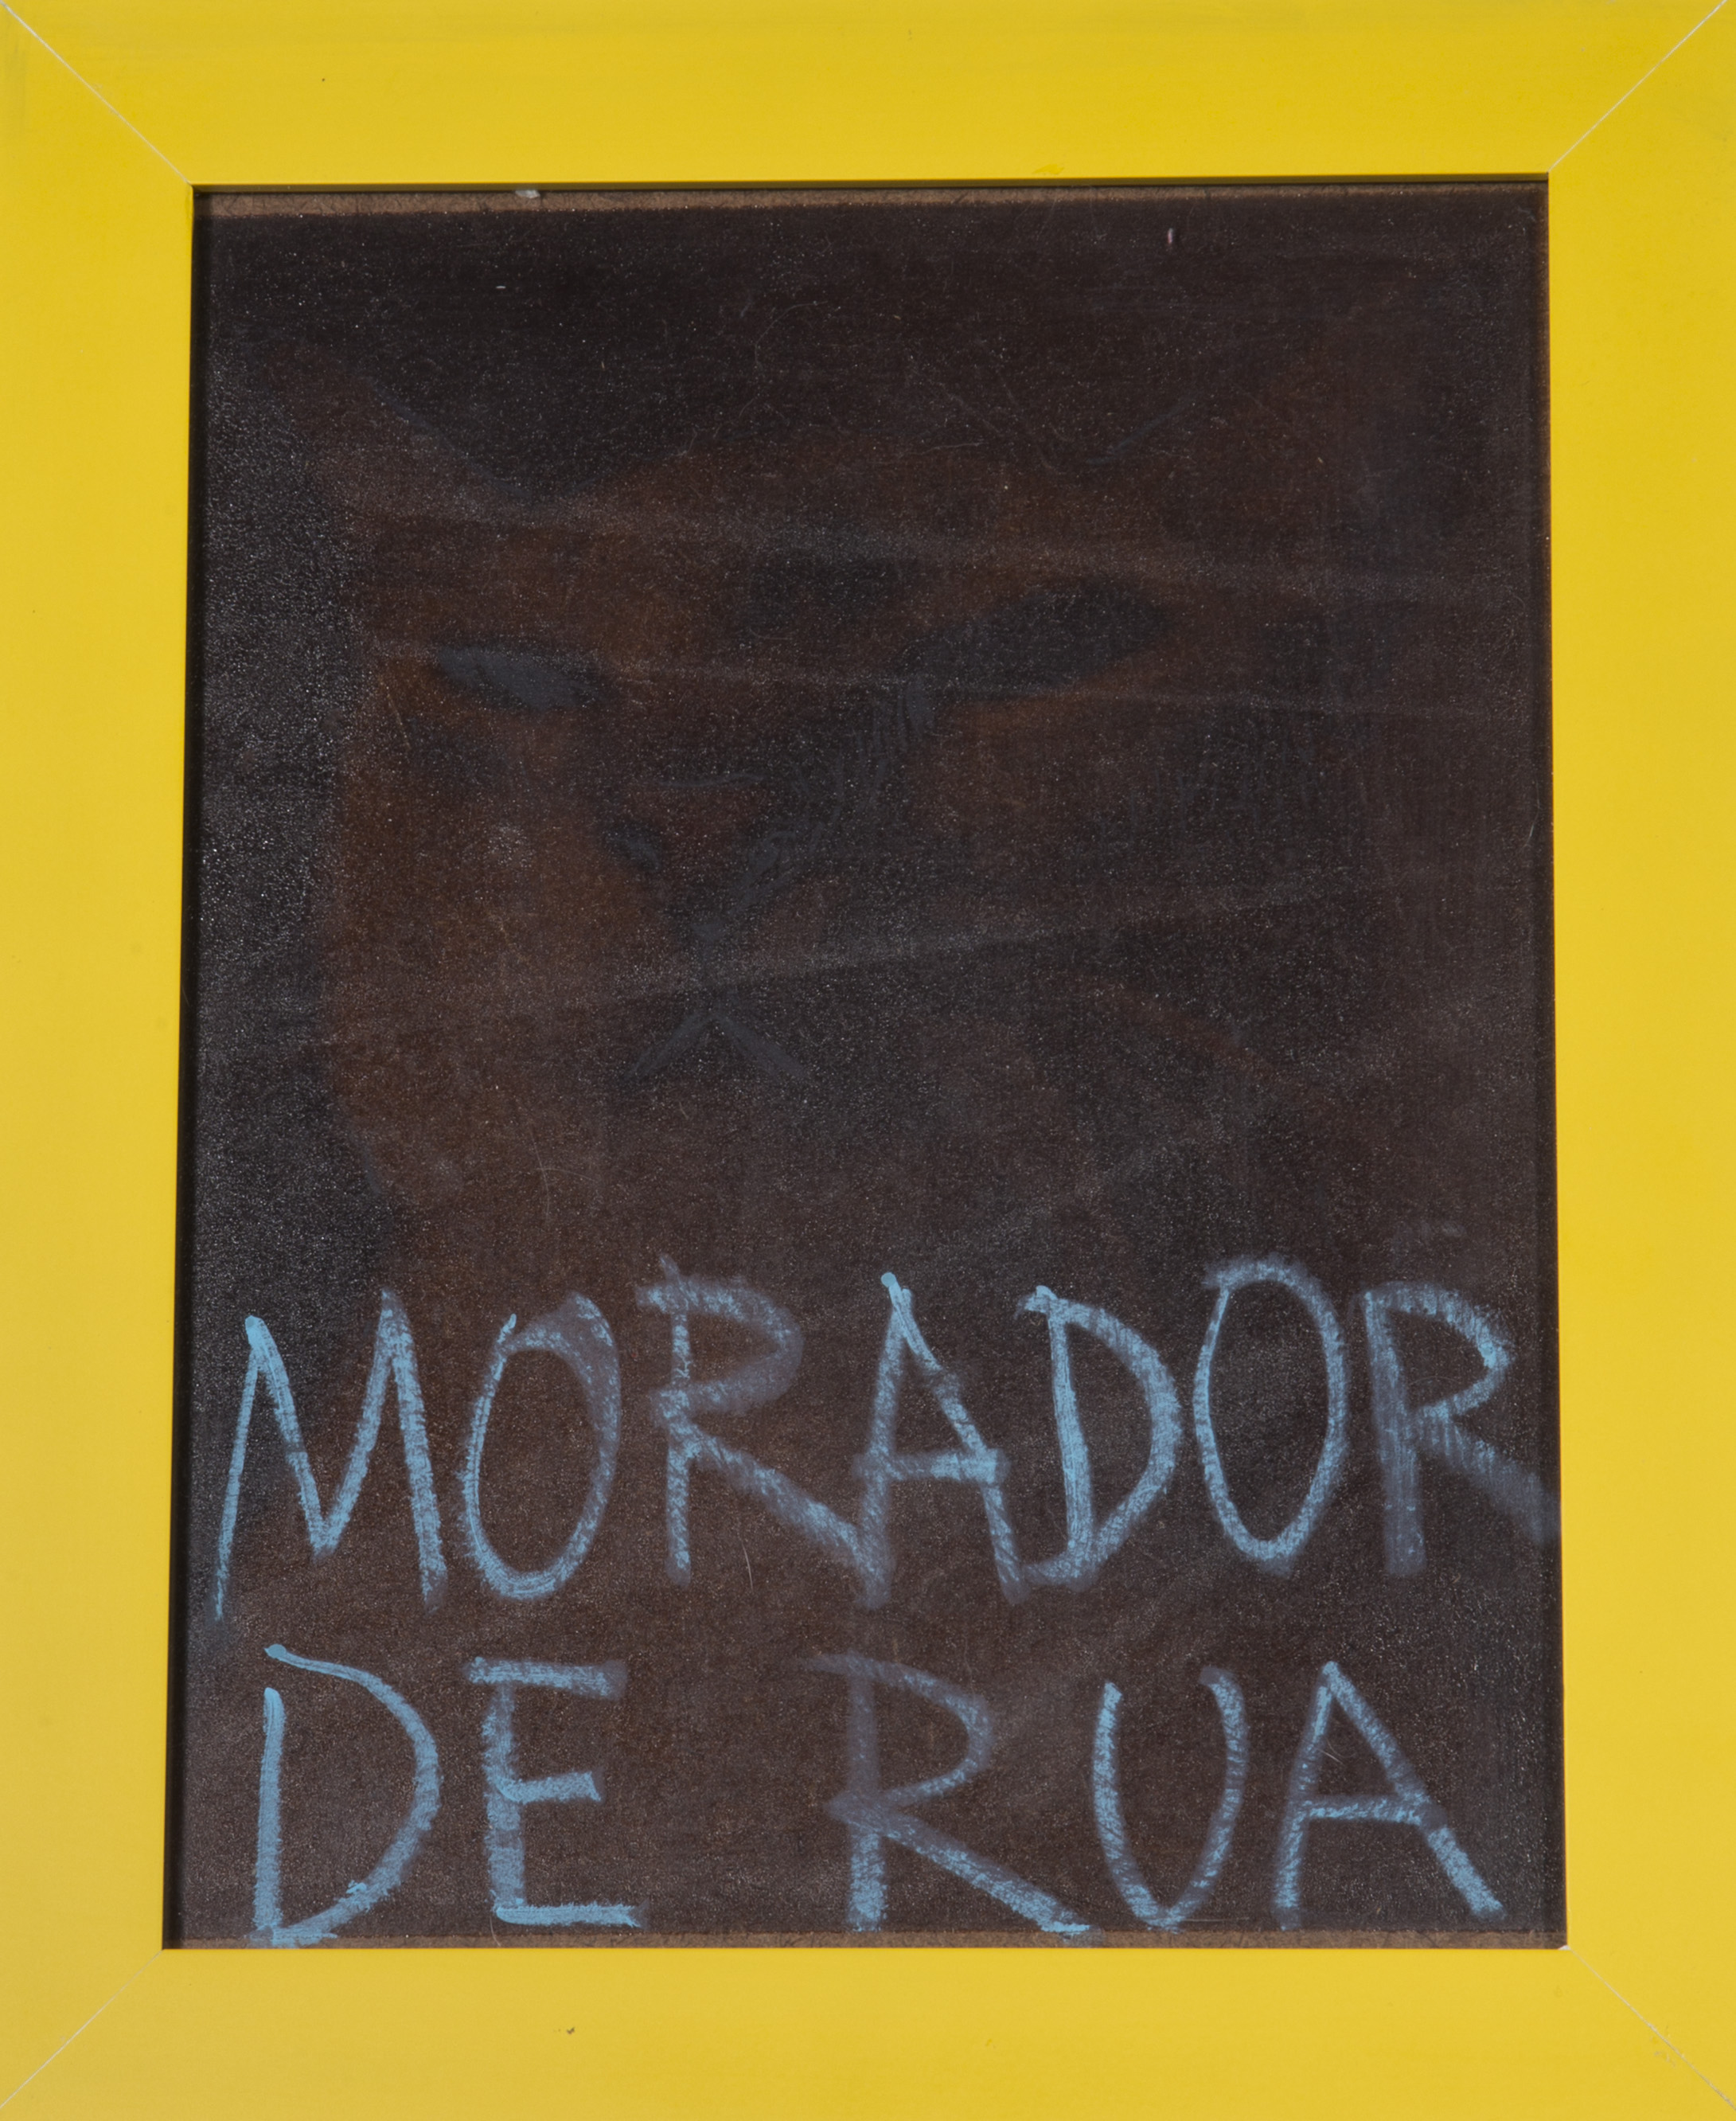 MORADOR
DE RUA